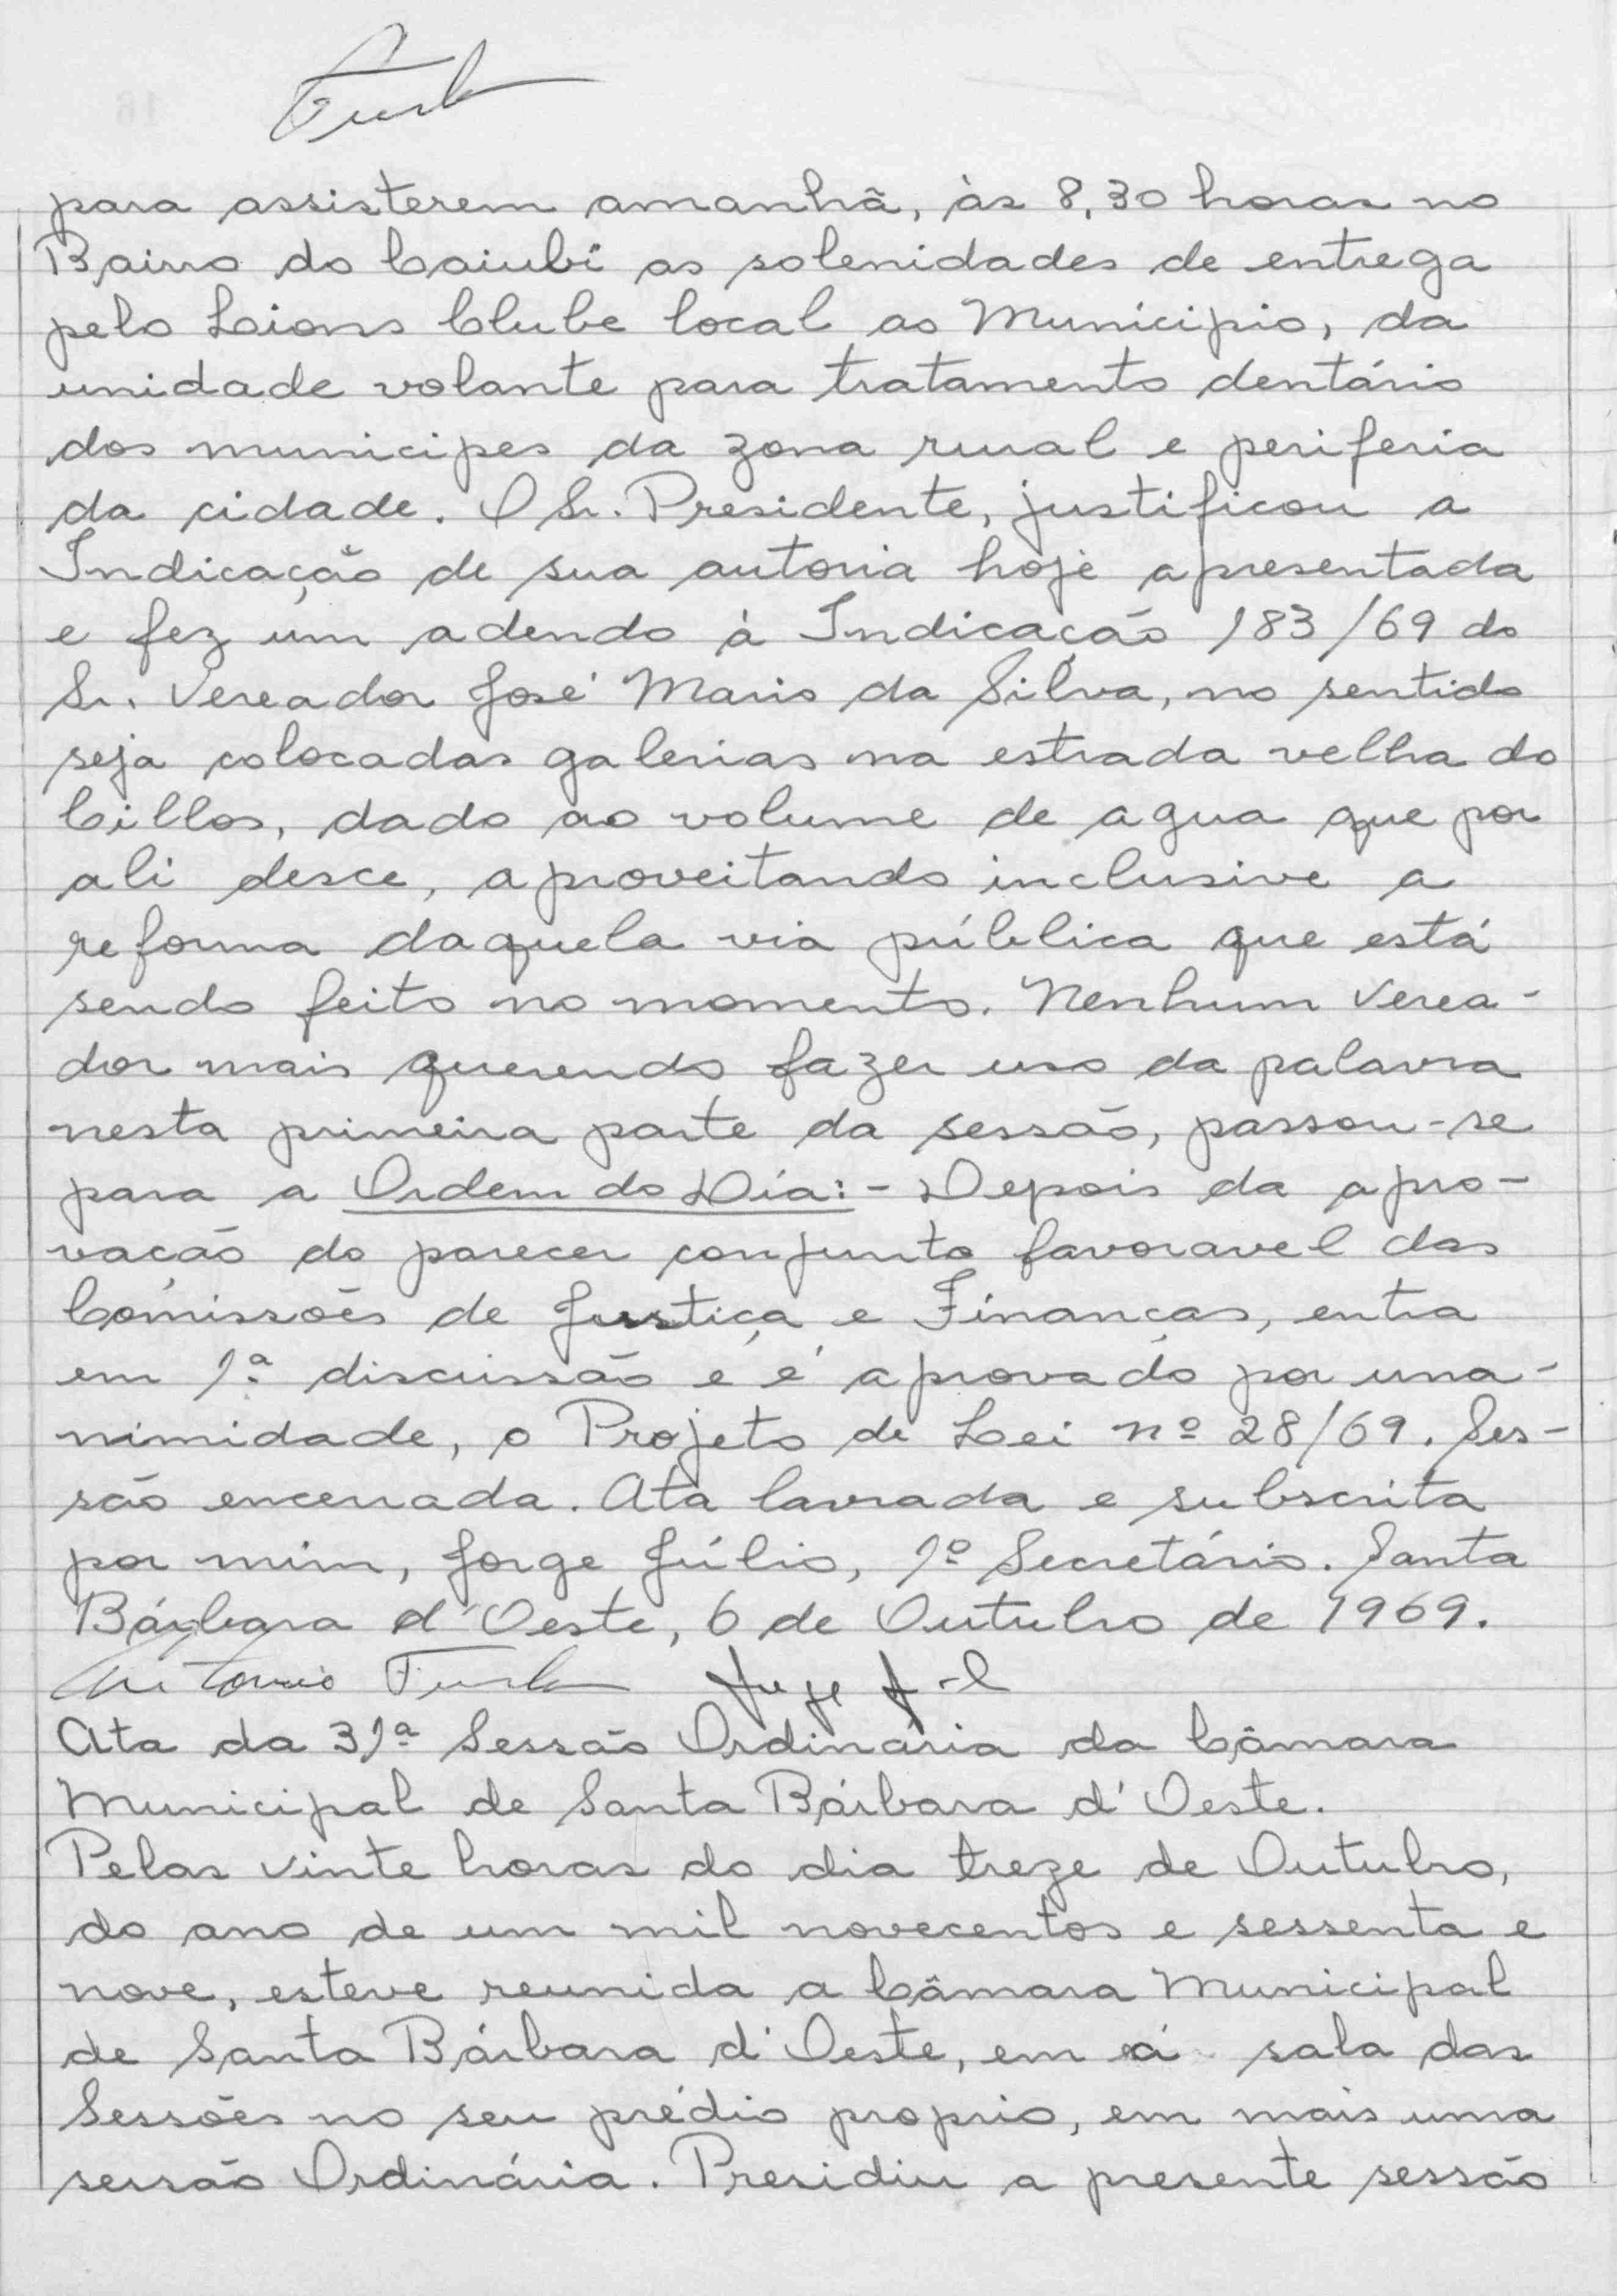 para assisterem amanhã, às 8,30 horas no
Bairro do Caiubí as solenidades de entrega
pelo Lions Clube local ao Município, da
unidade volante para tratamento dentário
dos municipes da zona rural e periferia
da cidade. O Sr. Presidente, justificou a
Indicação de sua autoria hoje apresentada
e fez um adendo à Indicação 183/69 do
Sr. Vereador José Maris da Silva, no sentido
seja colocadas galerias na estrada velha do
Cillos, dado ao volume de agua que por
ali desce, aproveitando inclusive a
reforma daquela via pública que está
sendo feito no momento. Nenhum Verea-
dor mais querendo fazer uso da palavra
nesta primeira parte da sessão, passou-se
para a Ordem do Dia:- Depois da apro-
vação do parecer conjunto favoravel das
Comissões de Justiça e Finanças, entra
em 1ª discussão e é aprovado por una-
nimidade, o Projeto de Lei nº 28/69. Ses-
são encerrada. Ata lavrada e subscrita
por mim, Jorge Júlio, 1º Secretário. Santa
Bárbara d'Oeste, 6 de Outubro de 1969.
Antonio
Ata da 31ª Sessão Ordinária da Câmara
Municipal de Santa Bárbara d'Oeste.
Pelas vinte horas do dia treze de Outubro,
do ano de um mil novecentos e sessenta e
nove, esteve reunida a Câmara Municipal
de Santa Bárbara d'Oeste, em a sala das
Sessões no seu prédio proprio, em mais uma
sessão Ordinária. Presidiu a presente sessão